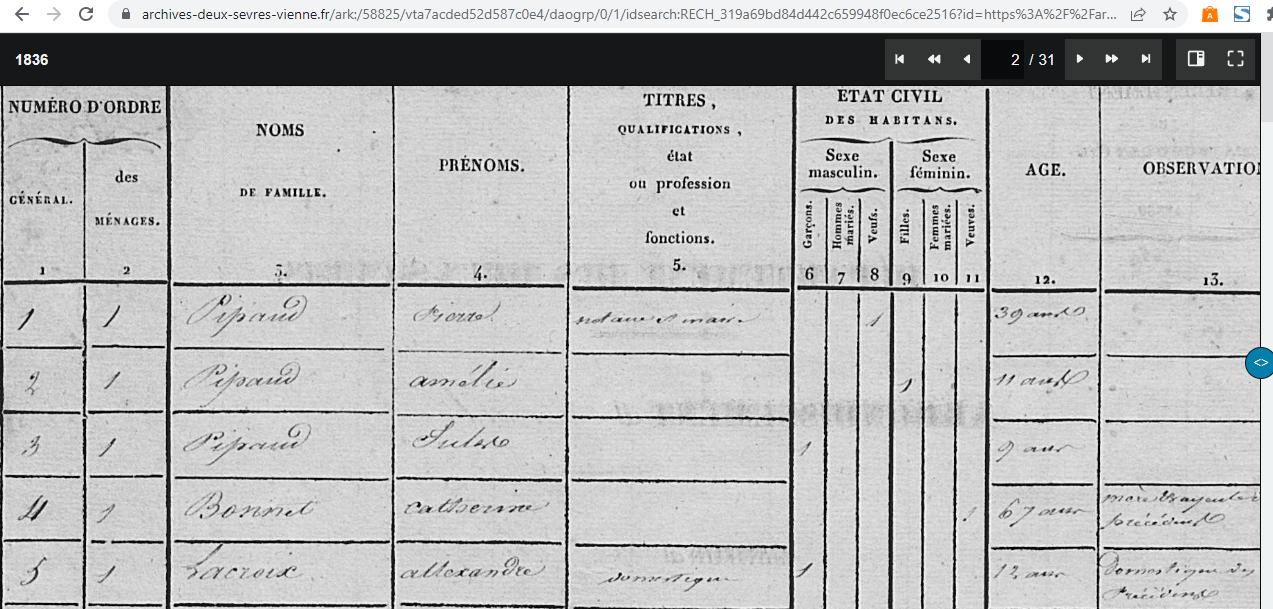 archives-deux-sevres-vienne.fr/ark:/58825/vta7acded52d587c0e4/daogrp/0/1/idsearch:RECH_319a69bd84d442c659948f0ec6ce2516?id=https%3A%2F%2Far...
1836
2 / 31
NUMÉRO D'ORDRE
GÉNÉRAL.
des
MÉNAGES.
NOMS
DE FAMILLE.
PRÉNOMS.
TITRES,
QUALIFICATIONS,
état
ou profession
et
fonctions.
ETAT CIVIL
DES HABITANS.
Sexe
masculin.
Sexe
féminin.
Garçons.
Hommes
mariés.
Veufs.
Filles.
Femmes
mariées.
Veuves.
AGE.
OBSERVATIO
1 2 3. 4. 5. 6 7 8 9 10 11 12. 13.
1 1 Pipaud Pierre notaire et maire 1 39 ans
2 1 Pipaud amélie 1 11 ans
3 1 Pipaud Jules 1 9 ans
4 1 Bonnet catherine 1 67 ans mère
précédent
5 1 Lacroix allexandre domestique 1 12 ans Domestique des
Précédent
<>